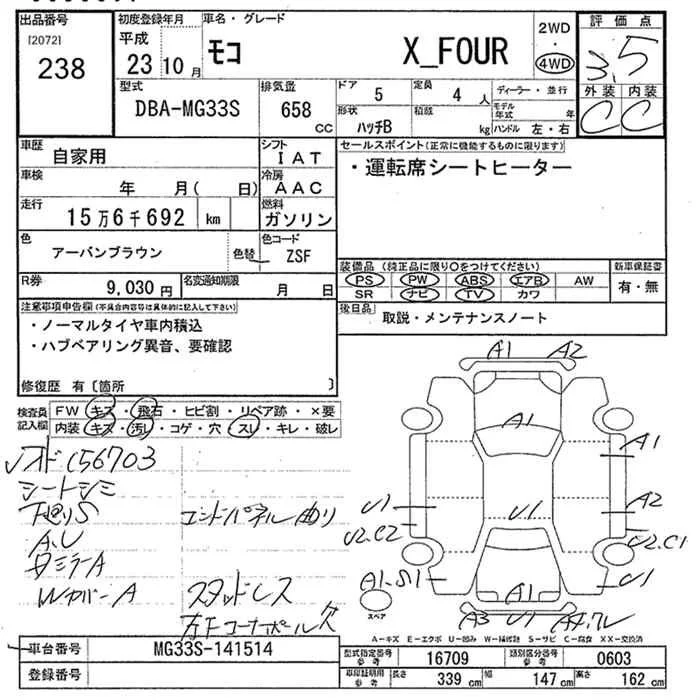 出品番号
[2072]
238
初度登録年月
平成
23 10 月
車名・グレード
モコ X_FOUR
2WD
・
4WD
評価点
3.5
外装 内装
C C
型式
DBA-MG33S
排気量
658 CC
ドア
5
定員
4 人
ディーラー・並行
形状
ハッチB
積載
kg
モデル年式 年
ハンドル 左・右
車歴
自家用
シフト
I A T
車検
年 月( 日)
冷房
A A C
走行
15万6千692 km
燃料
ガソリン
色
アーバンブラウン
色替
色コード
ZSF
R券
9,030 円
名変通知期限
月 日
セールスポイント(正常に機能するものに限ります)
・運転席シートヒーター
装備品 (純正品に限り〇をつけてください)
PS PW ABS エアB AW
SR ナビ TV カワ
新車保証書
有・無
後日品
取説・メンテナンスノート
注意事項申告欄(不具合内容等は具体的に記入して下さい)
・ノーマルタイヤ車内積込
・ハブベアリング異音、要確認
修復歴 有〔箇所 〕
検査員記入欄
FW キズ・飛石・ヒビ割・リペア跡・×要
内装 キズ・汚レ・コゲ・穴・スレ・キレ・破レ
156703
シートシミ
下廻りS
コンドパネル曲り
A,U
ミラーA
WカバーA
スタッドレス
コーナーポール欠
A1 A2
A1
A1
A2
U1
U2.C2
U1
U2.C1
A1.S1
U1
A1
A3 U1
スペア
A−キズ E−エクボ U−凹み W−補修跡 S−サビ C−腐食 XX−交換済
車台番号
MG33S-141514
登録番号
型式指定番号
参考
16709
類別区分番号
参考
0603
車印証明用
参考
長さ 339 cm 幅 147 cm 高さ 162 cm